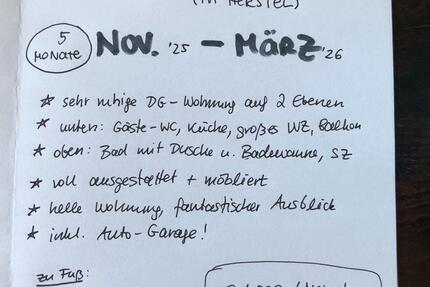 (IN HERSTEL)
5 MONATE
NOV. '25 – MÄRZ '26
* sehr ruhige DG-Wohnung auf 2 Ebenen
* unten: Gäste-WC, Küche, großes WZ, Balkon
* oben: Bad mit Dusche u. Badewanne, SZ
* voll ausgestattet + möbliert
* helle Wohnung, fantastischer Ausblick
* inkl. Auto-Garage!
zu Fuß: